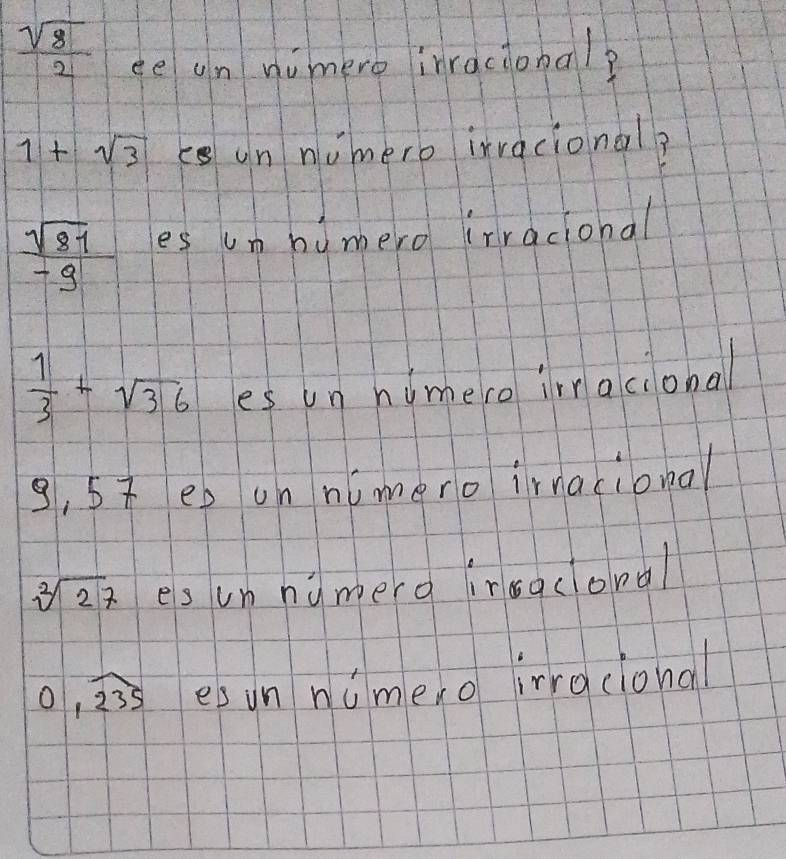 √8/2 ee un número irracional?
1 + √3 es un número irracional?
√81/-9 es un número irracional
1/3 + √36 es un número irracional
9,57 es un número irracional
∛27 es un número irracional
0,2͡35 es un número irracional